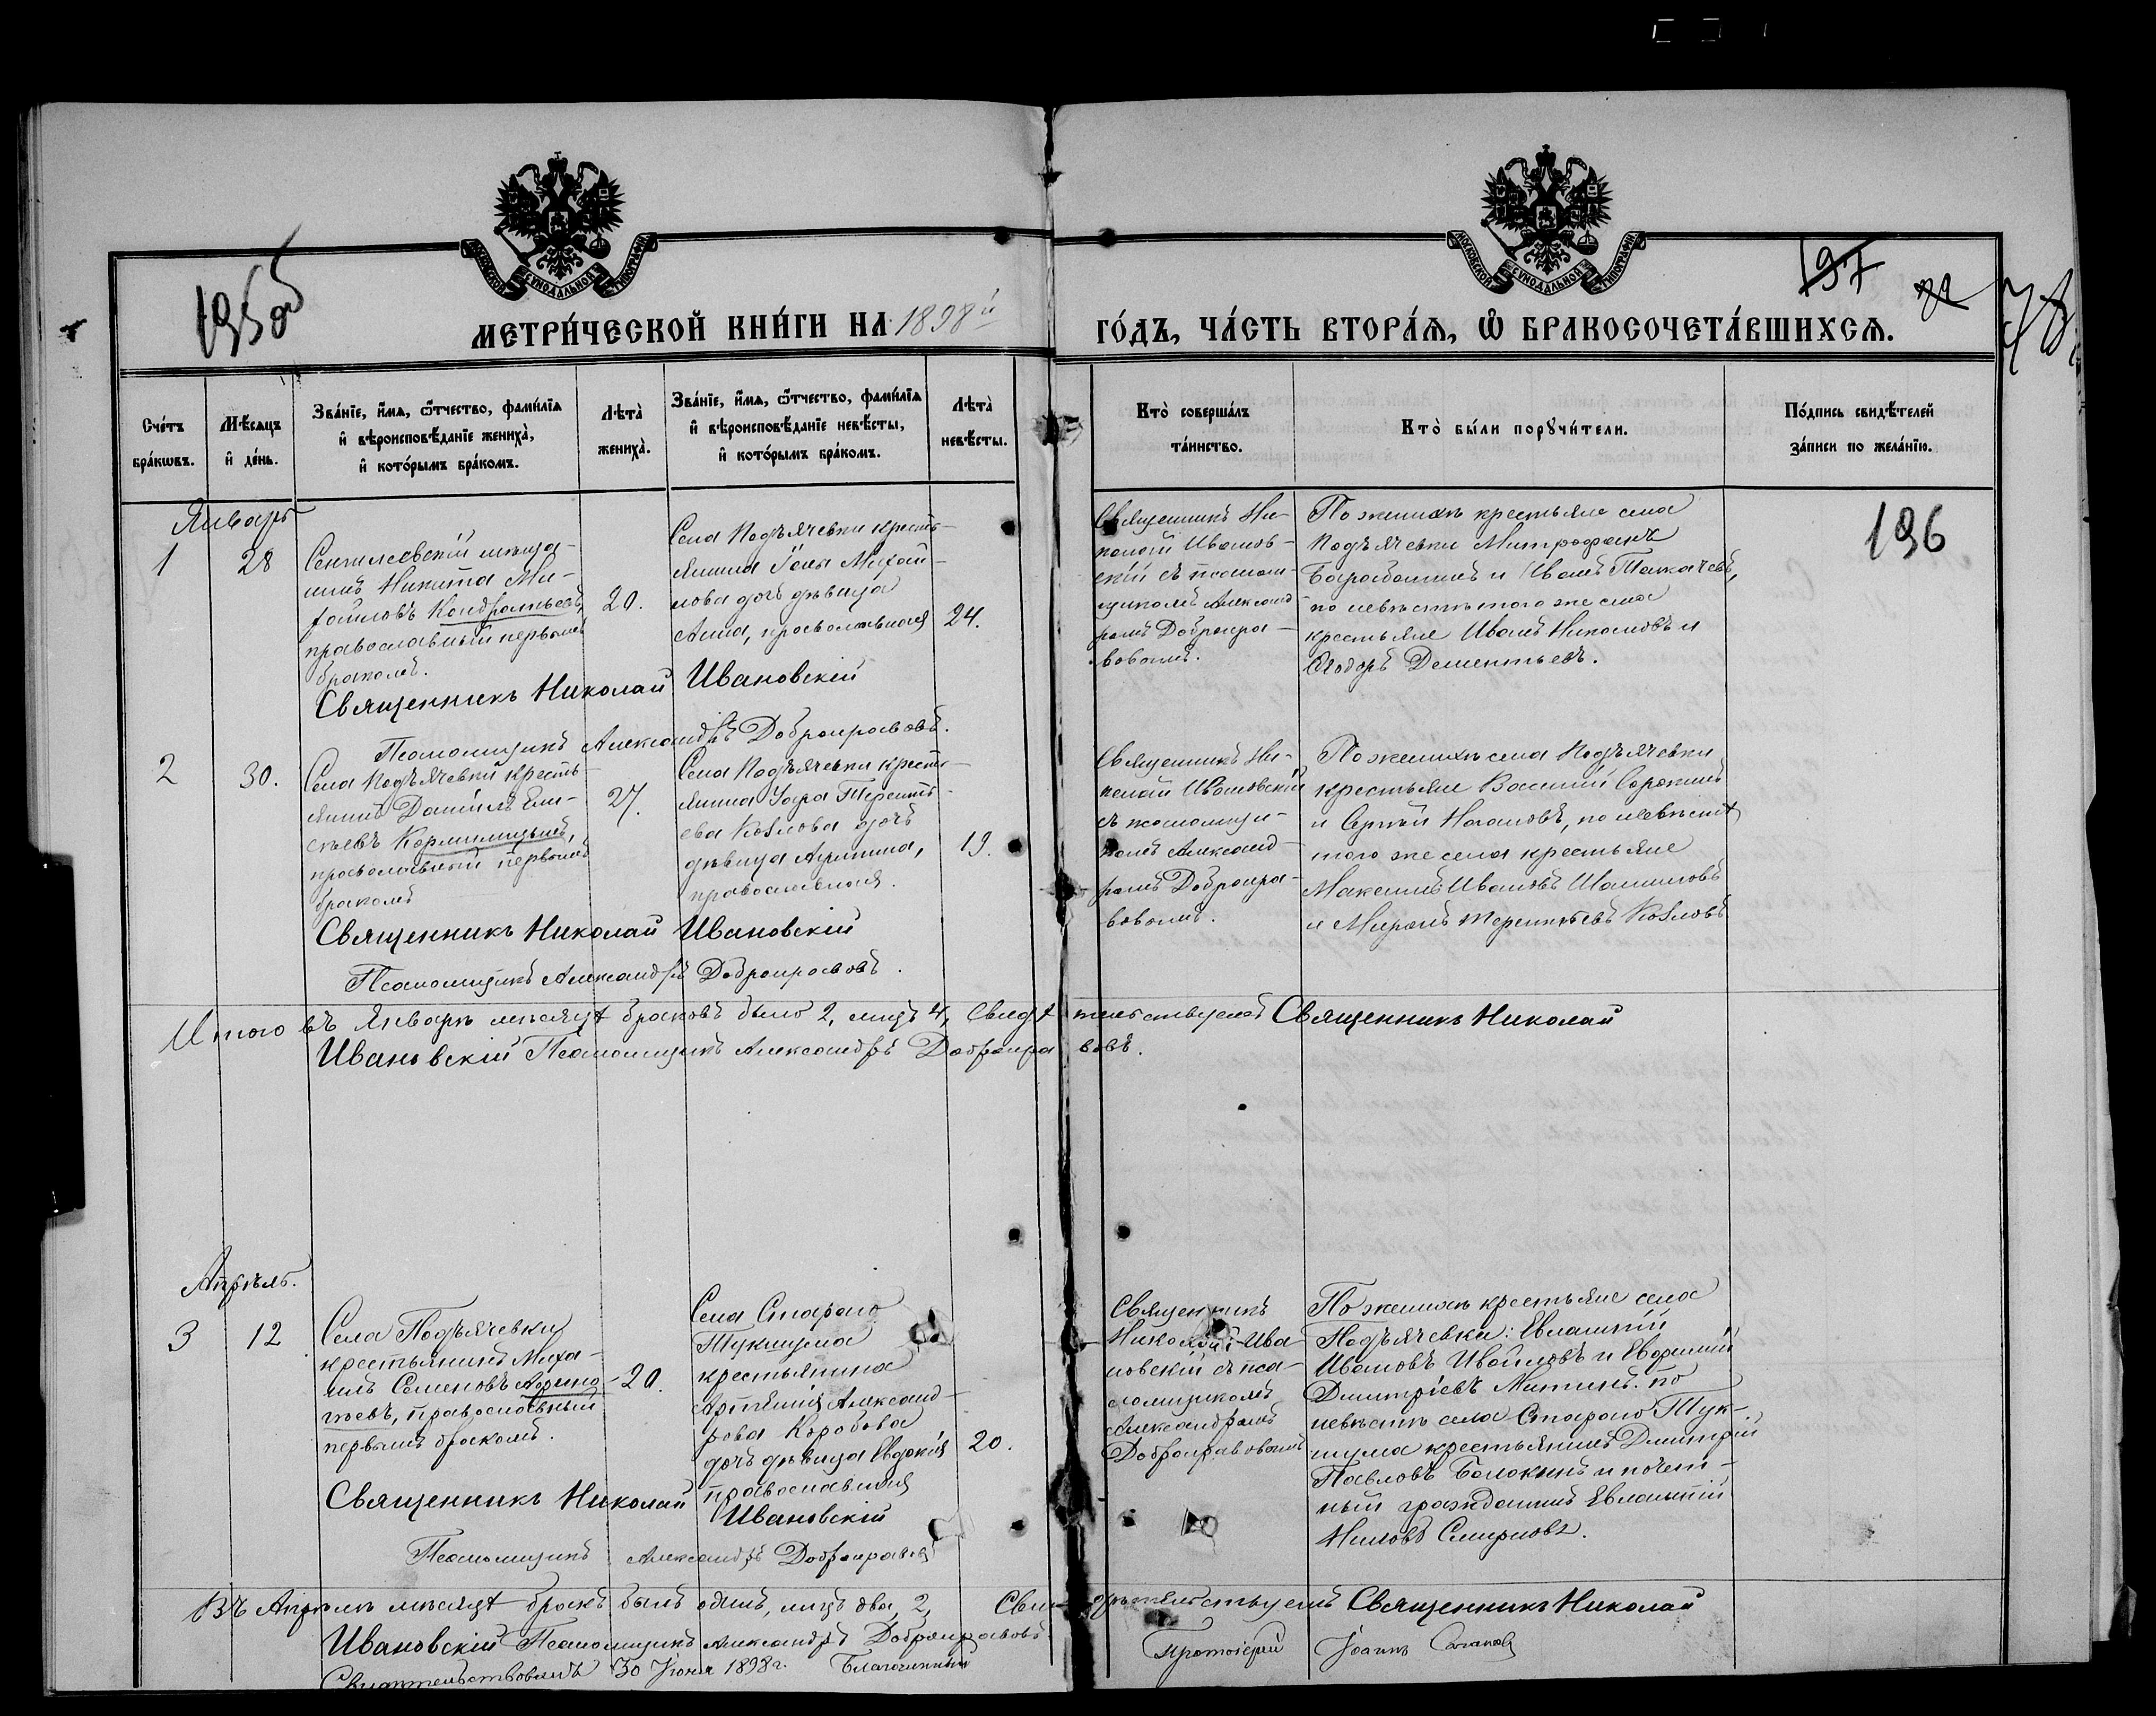 195об
197
МОСКОВСКОЙ СУНОДАЛЬНОЙ ТИПОГРАФІИ
МОСКОВСКОЙ СУНОДАЛЬНОЙ ТИПОГРАФІИ
МЕТРИ́ЧЕСКОЙ КНИ́ГИ НА 1898й ГО́ДЪ, ЧА́СТЬ ВТОРА́Ѧ, Ѽ БРАКОСОЧЕТА́ВШИХСѦ.
Сче́тъ
бра́кѡвъ.
Мѣ́сѧцъ
и҆ де́нь.
Зва́нїе, и҆́мѧ, ѻ҆́тчество, фами́лїѧ
и҆ вѣроисповѣ́данїе жениха̀,
и҆ кото́рымъ бра́комъ.
Лѣта̀
жениха̀.
Зва́нїе, и҆́мѧ, ѻ҆́тчество, фами́лїѧ
и҆ вѣроисповѣ́данїе невѣ́сты,
и҆ кото́рымъ бра́комъ.
Лѣта̀
невѣ́сты.
Кто̀ соверша́лъ
та́инство.
Кто̀ бы́ли порꙋчи́тели.
По́дпись свидѣ́телей
за́писи по жела́нїю.
196
Январь
1
28
Сенгилеевскій мѣща-
нинъ Никита Ми-
хайловъ Кондратьевъ,
православный первымъ
бракомъ.
20.
Села Подъячевки кресть-
янина Іоны Михай-
лова дочь дѣвица
Анна, православная
24.
Священникъ Ни-
колай Иванов-
скій съ псалом-
щикомъ Александ-
ромъ Доброн­ра-
вовымъ.
По женихѣ крестьяне села
Подъячевки Митрофанъ
и Иванъ Толкачевъ,
по невѣстѣ того же села
крестьяне Иванъ Никоновъ и
Ѳеодоръ Дементьевъ.
Священникъ Николай Ивановскій
Псаломщикъ Александръ Добронравовъ.
2
30.
Села Подъячевки кресть-
янинъ Даніилъ Ели-
сѣевъ Кормилицынъ,
православный первымъ
бракомъ
27.
Села Подъячевки кресть-
янина Уара Терентъ-
ева Козлова дочь
дѣвица
православная.
19.
Священникъ Ни-
колай Ивановскій
съ псаломщи-
комъ Александ-
ромъ Добронра-
вовымъ.
По женихѣ села Подъячевки
крестьяне Василій Сорокинъ
и Сергѣй по невѣстѣ
того же села крестьяне
Максимъ Ивановъ
и Миронъ Терентьевъ Козловъ
Священникъ Николай Ивановскій
Псаломщикъ Александръ Добронравовъ.
Итого въ Январѣ мѣсяцѣ браковъ было 2, лицъ 4, Свидѣтельствуемъ Священникъ Николай
Ивановскій Псаломщикъ Александръ Добронравовъ.
Апрѣль.
3
12
Села Подъячевки
крестьянинъ Миха-
илъ Семеновъ
православный
первымъ бракомъ.
20.
Села Стараго
Тукшума
крестьянина
Артемія Александ-
рова Коробова
дочь дѣвица Евдокія
православная
20.
Священникъ
Николай Ива
новскій съ пса-
ломщикомъ
Александромъ
Добронравовымъ
По женихѣ крестьяне села
Подъячевки: Евлампій
Ивановъ и Евфимій
Дмитріевъ Митинъ. по
невѣстѣ села Стараго Тук-
шума крестьянинъ Дмитрій
Павловъ и почет-
ный гражданинъ Евлампій
Ниловъ Смирновъ.
Священникъ Николай Ивановскій
Псаломщикъ Александръ Добронравовъ
Въ Апрѣлѣ мѣсяцѣ бракъ былъ одинъ, лицъ два, 2, Свидѣтельствуемъ Священникъ Николай
Ивановскій Псаломщикъ Александръ Добронравовъ.
Свидѣтельствовалъ 30 Іюня 1898г. Благочинный Протоіерей Іоаннъ